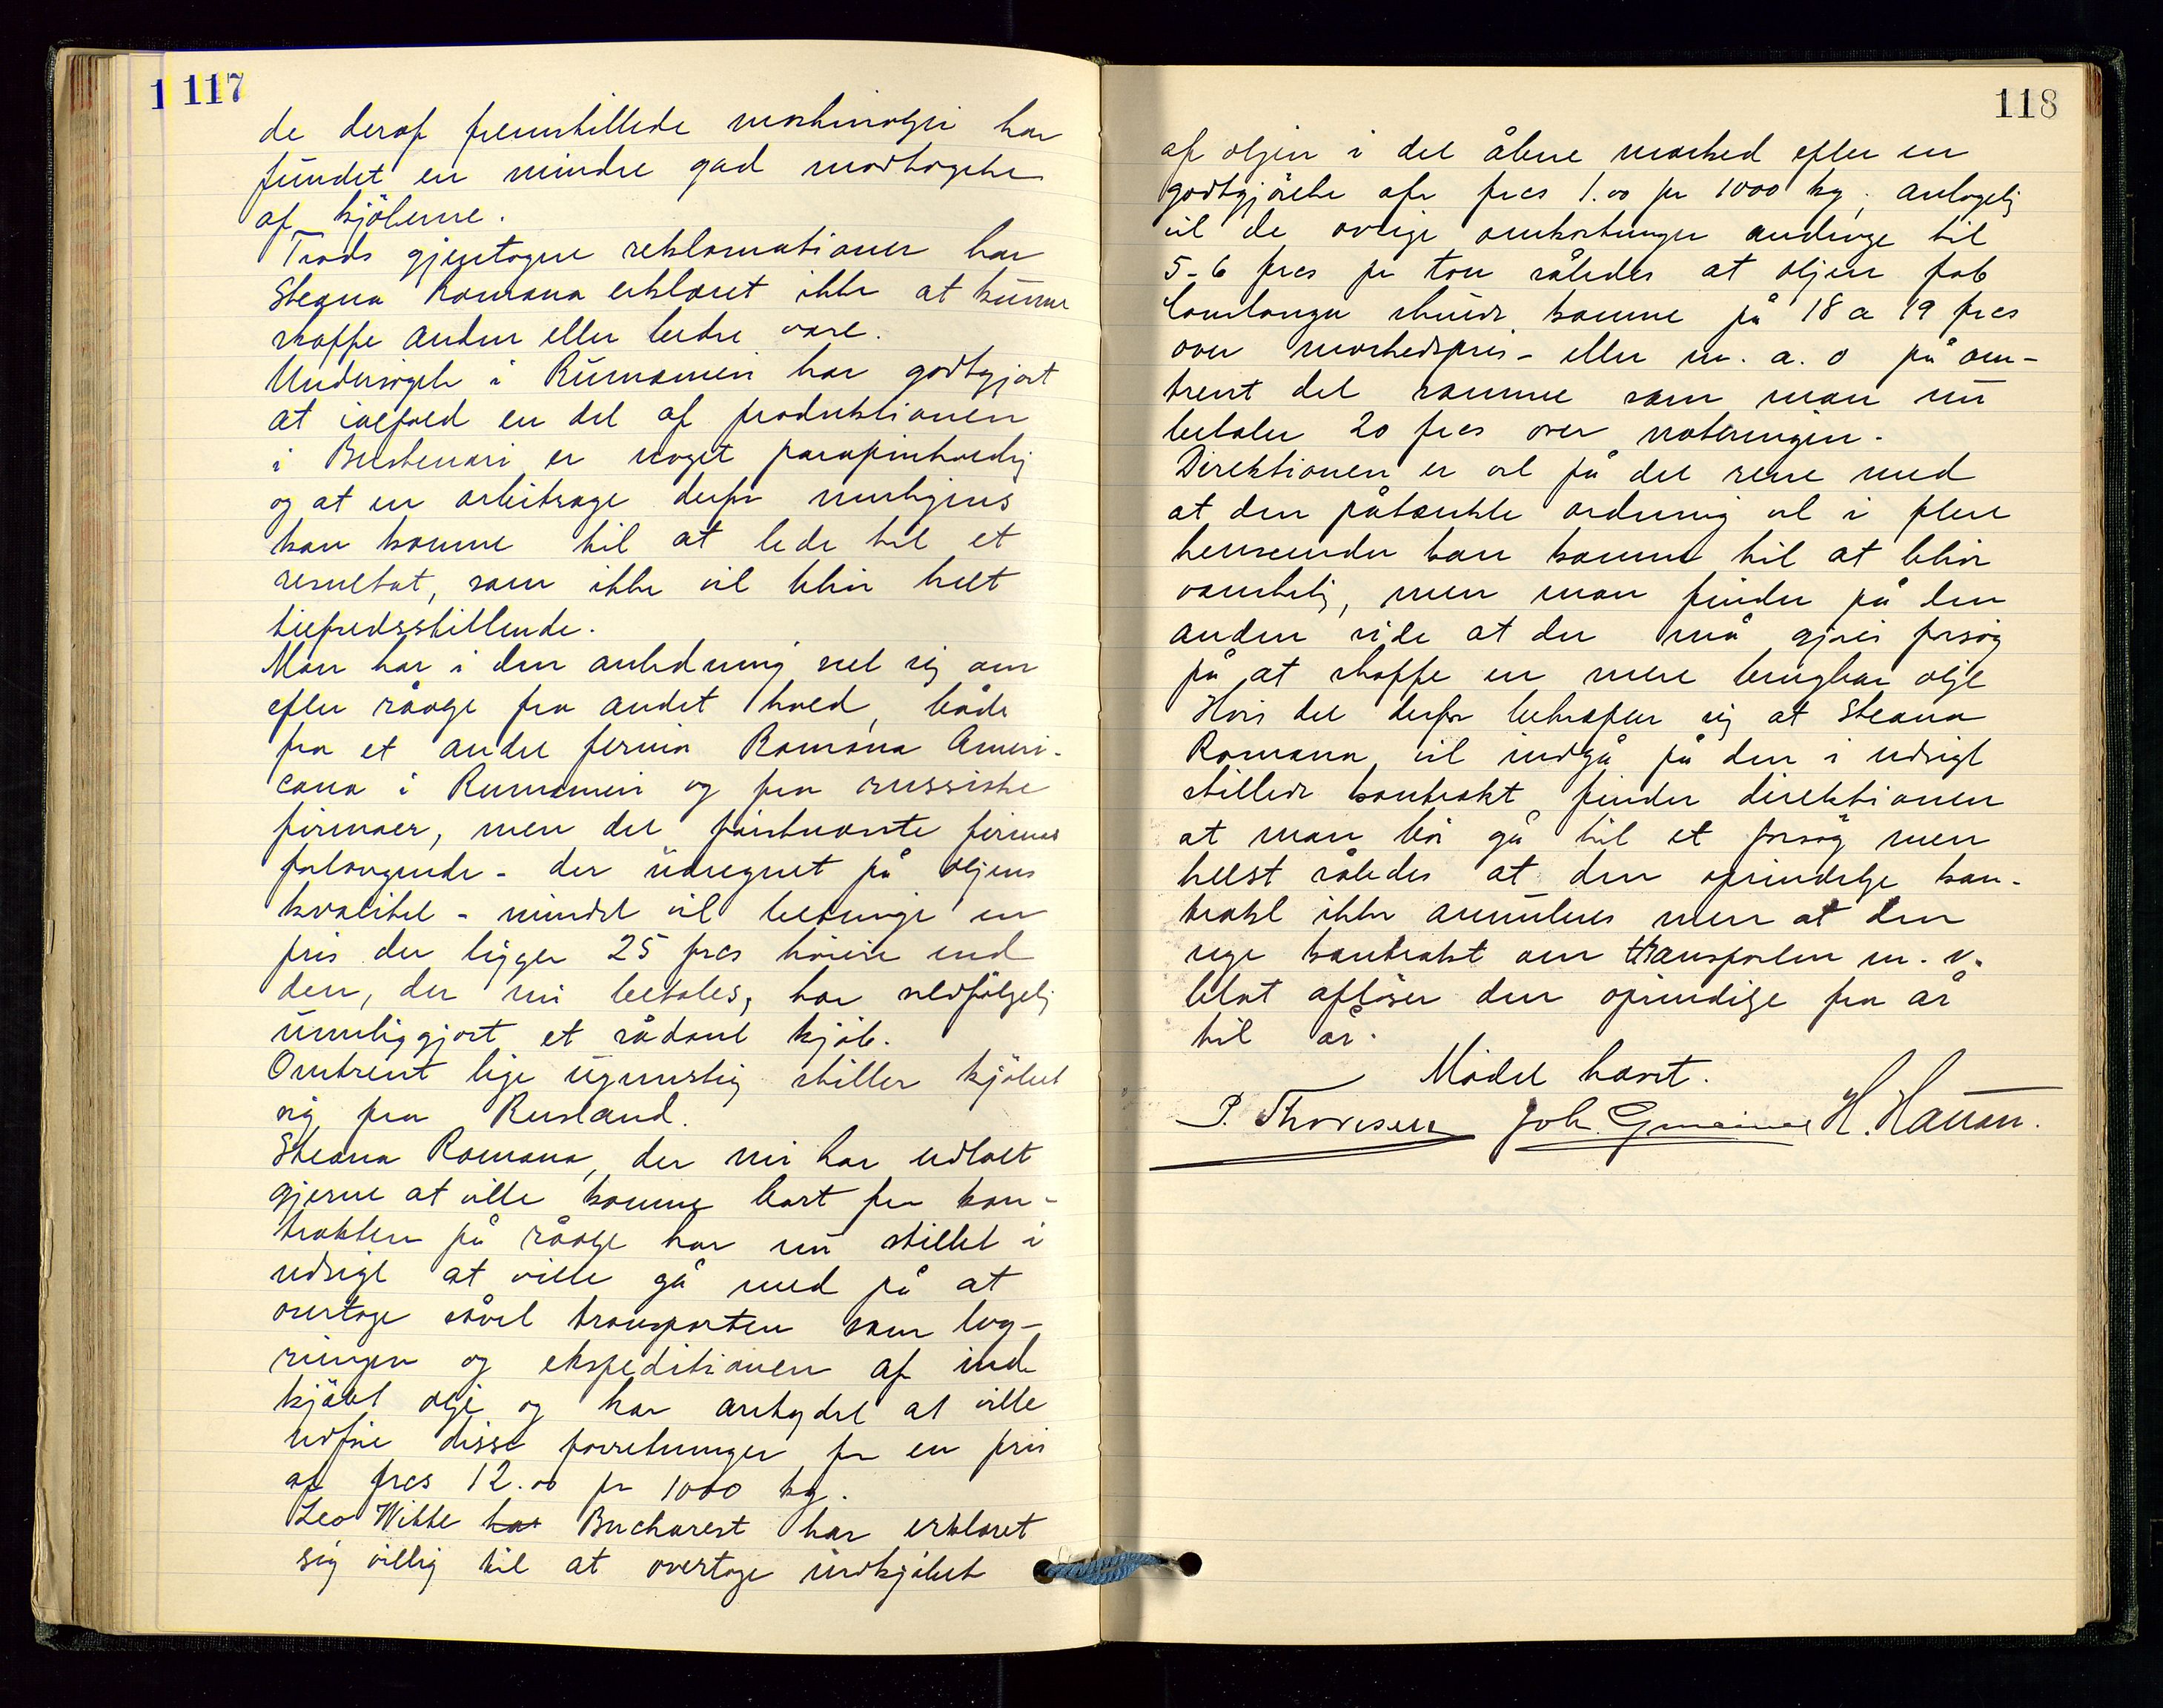 1 117
de deraf fremstillede maskinoljer har
fundet en mindre god modtagelse
af kjöberne.
Trods gjentagne reklamationer har
Steaua Romana erklæret ikke at kunne
skaffe anden eller bedre vare.
Undersögelse i Rumænien har godtgjort
at ialfald en del af produktionen
i Bustenari er noget parafinholdig
og at en arbitrage derfor muligens
kan komme til at lede til et
resultat, som ikke vil blive helt
tilfredsstillende.
Man har i den anledning set sig om
efter råolje fra andet hold, både
fra et andet firma Romana Ameri-
cana i Rumænien og fra russiske
firmaer, men det förstnævnte firmas
forlangende - der udregnet på oljens
kvalitet - mindst vil betinge en
pris der ligger 25 frcs höiere end
den, der nu betales, har selvfölgelig
umuliggjort et sådant kjöb.
Omtrent lige ugunstig stiller kjöbet
sig fra Rusland.
Steaua Romana, der nu har udtalt
gjerne at ville komme bort fra kon-
trakten på råolje har nu stillet i
udsigt at ville gå med på at
overtage såvel transporten som lag-
ringen og ekspeditionen af ind-
kjöbt olje og har antydet at ville
udföre disse forretninger for en pris
af frcs 12.00 pr 1000 kg.
Leo Witte har Bucharest har erklæret
sig villig til at overtage indkjöbet
118
af oljen i det åbne marked efter en
godtgjörelse afr frcs 1.00 pr 1000 kg; antagelig
vil de övrige omkostninger andrage til
5-6 frcs pr ton således at oljen fob
Constanza skulde komme på 18 a 19 frcs
over markedspris - eller m. a. o på om-
trent det samme som man nu
betaler 20 frcs over noteringen.
Direktionen er vel på det rene med
at den påtænkte ordning vel i flere
henseender kan komme til at blive
vanskelig, men man finder på den
anden side at der må gjöres forsög
på at skaffe en mere brugbar olje
Hvis det derfor bekræfter sig at Steaua
Romana vil indgå på den i udsigt
stillede kontrakt finder direktionen
at man bör gå til et forsög men
helst således at den oprindelige kon-
trakt ikke annuleres men at den
nye kontrakt om transporten m. v.
blot aflöser den oprindelige fra år
til år.
Mödet hævet.
P. Thoresen Joh. H. Hansen.